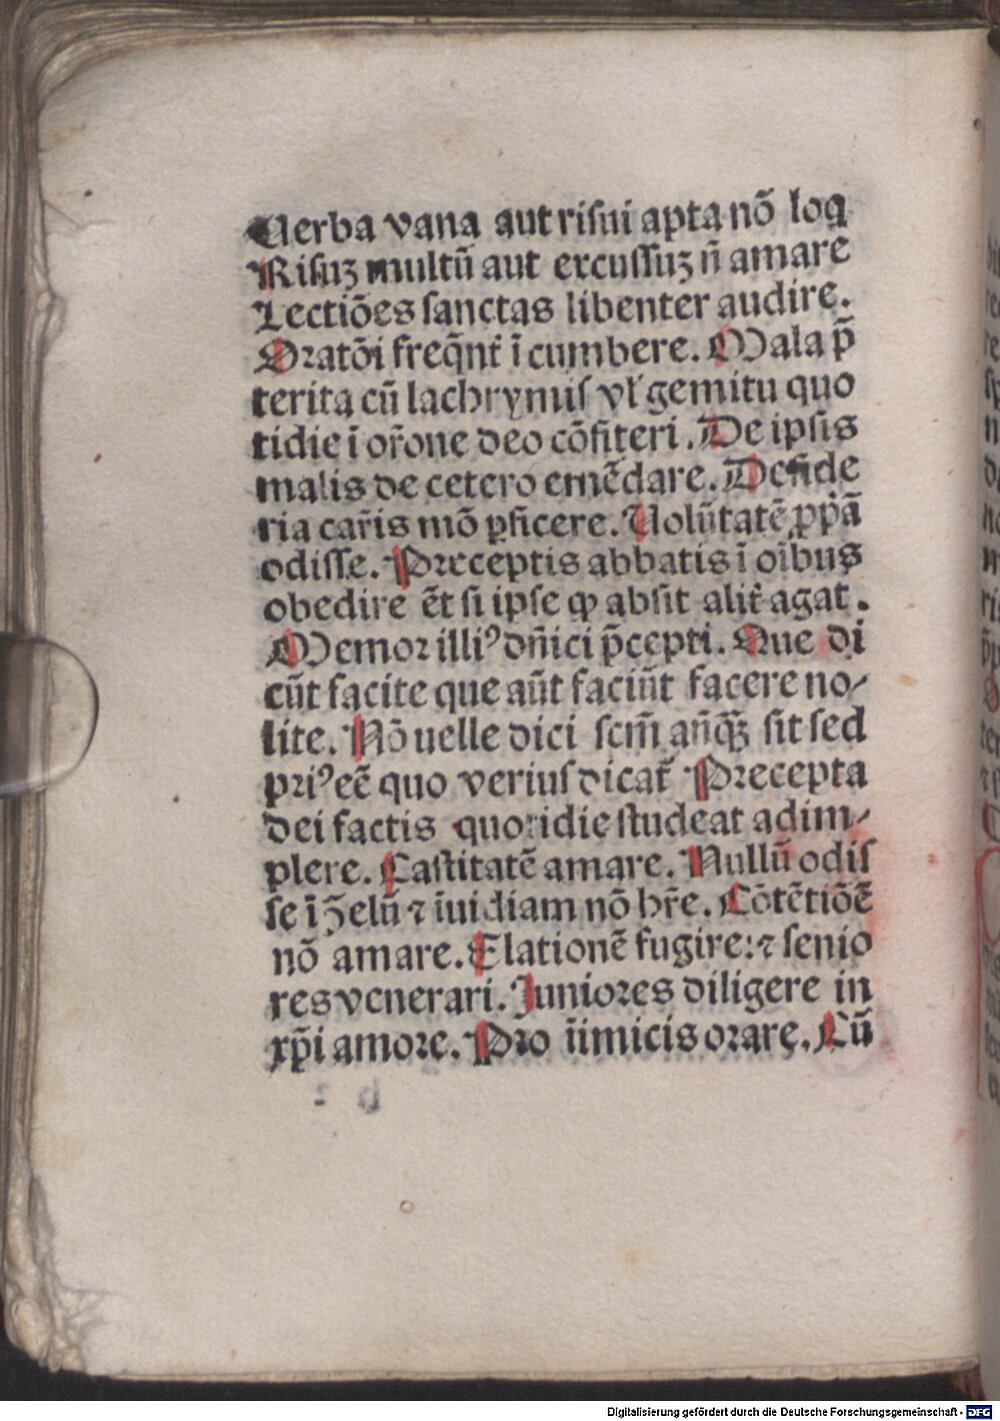 Uerba vana aut risui apta nō loq
Risuꝫ multū aut excussuꝫ n̄ amare
Lectiōes sanctas libenter audire.
Oratōi freq̄nt̃ ī cumbere. Mala p̄
terita cū lachrymis vl̕ gemitu quo
tidie ī or̃one deo cōfiteri. De ipsis
malis de cetero emēdare. Deside
ria car̃is mō ꝑficere. Uolūtatē ꝓpͥā
odisse. Preceptis abbatis ī oībus
obedire ēt si ipse ꝙ absit alit̃ agat.
Memor illiꝰ dn̄ici p̄cepti. Que di
cūt facite que aūt faciūt facere no⸗
lite. Nō uelle dici scm̄ an̄qꝫ sit sed
priꝰ eē quo verius dicat̃ Precepta
dei factis quotidie studeat adim⸗
plere. Castitatē amare. Nullū odis
se ī ʒelū ⁊ īuidiam nō hr̃e. Cōtētiōē
nō amare. Elationē fugire: ⁊ senio
res venerari. Juniores diligere in
xp̄i amore. Pro īimicis orare. Cū
Digitalisierung gefördert durch die Deutsche Forschungsgemeinschaft - DFG